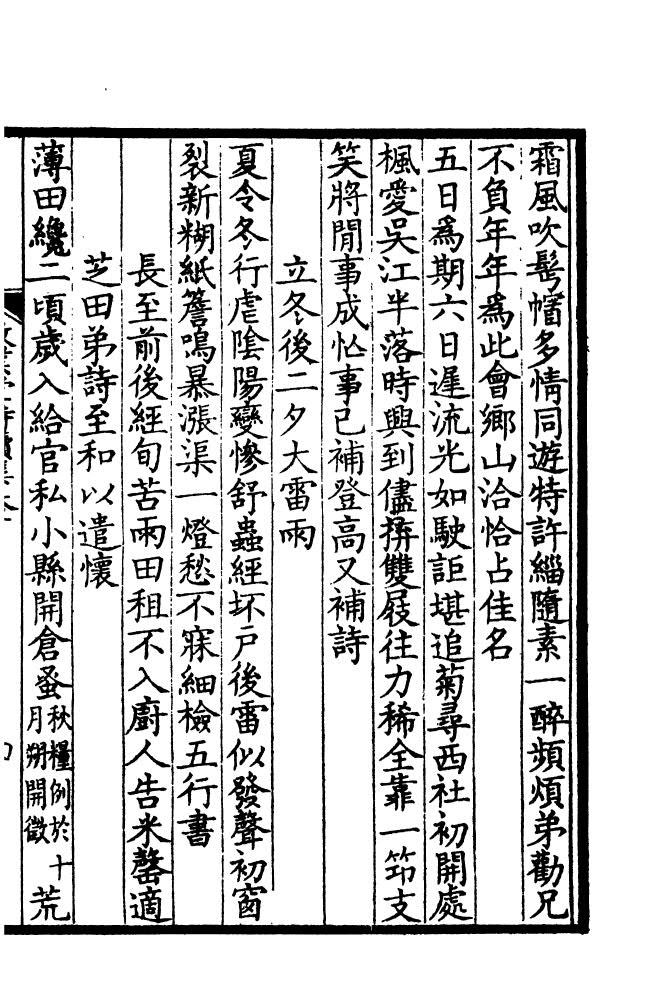 霜風吹髩㡌多情同遊特許緇隨素一醉頻煩弟勸兄
不負年年爲此會鄉山洽恰占佳名
五日爲期六日遲流光如駛詎堪追菊尋西社初開處
楓愛吳江半落時興到儘拚雙屐往力稀全靠一笻支
笑將閒事成忙事已補登高又補詩
立冬後二夕大雷雨
夏令冬行虐陰陽變慘舒蟲經坏戶後雷似發聲初窗
裂新糊紙簷鳴暴漲渠一燈愁不寐細檢五行書
長至前後經旬苦雨田租不入廚人告米罄適
芝田弟詩至和以遣懷
薄田纔二頃歲入給官私小縣開倉蚤秋糧例於十月朔開徵荒